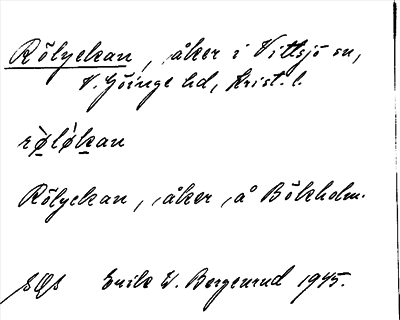 Rölyckan, åker i Vittsjö sn,
V. Göinge hd, Krist. l.
rø̀lø̀kan
Rölyckan, åker, å Bökholm.
SOS Erik W. Bergenrud 1945.